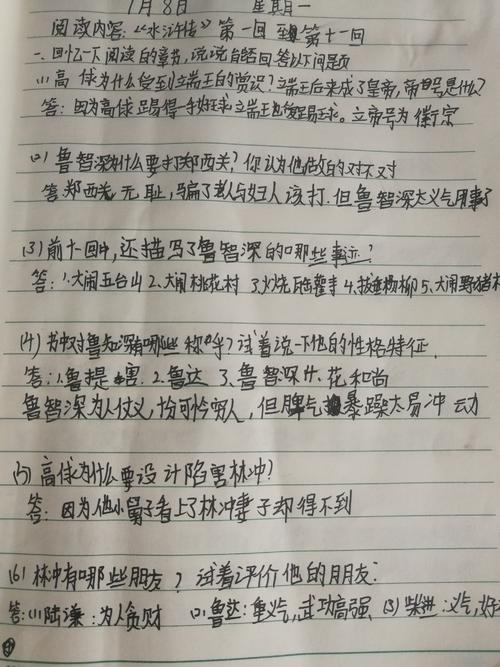 7月8日 星期一
阅读内容:《水浒传》第一回 至第十一回
一、回忆一下阅读的章节,说说自己回答以下问题
(1) 高俅为什么受到端王的赏识?端王后来成了皇帝,帝号是什么?
答:因为高俅踢得一手好球端王也爱踢球。立帝号为 徽宗
(2) 鲁智深为什么要打郑西关?你认为他做的对不对
答 郑西关 无耻,骗了老人与妇人 该打.但鲁智深太义气用事了
(3) 前十回中,还描写了鲁智深的哪些事迹?
答:1.大闹五台山 2、大闹桃花村 3.火烧瓦罐寺 4.拔垂杨柳 5、大闹野猪林
(4) 书中对鲁知深有哪些称呼?试着说一下他的性格特征.
答:1.鲁提害.2.鲁达 3、鲁智深 4.花和尚
鲁智深为人仗义,怜穷人,但脾气暴躁太易冲动
(5) 高俅为什么要设计陷害林冲?
答:因为他小舅子看上了林冲妻子却得不到
(6) 林冲有哪些朋友?试着评价他的朋友.
答:(1)陆谦:为人贪财 (2)鲁达:重义气,武功高强 (3)柴进:义气,好